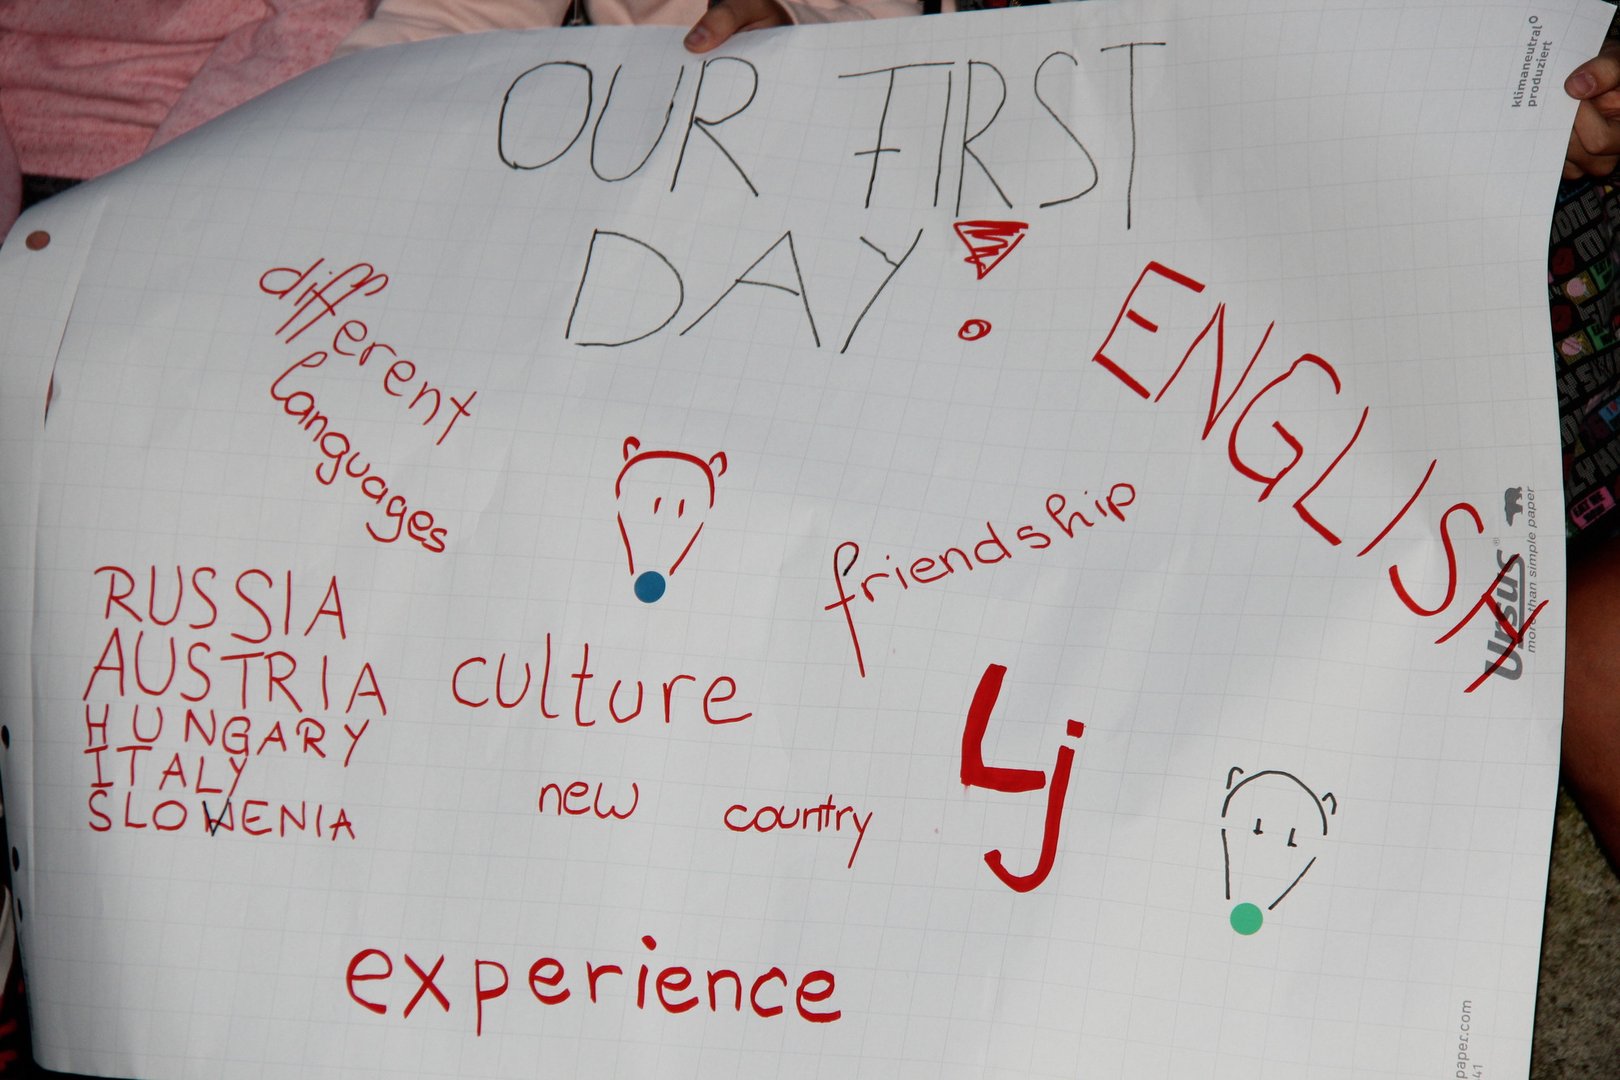 OUR FIRST
DAY!
klimaneutral
produziert
different
languages
ENGLISH
friendship
Ursus®
more than simple paper
RUSSIA
AUSTRIA
HUNGARY
ITALY
SLOVENIA
culture
new country
Lj
experience
paper.com
41